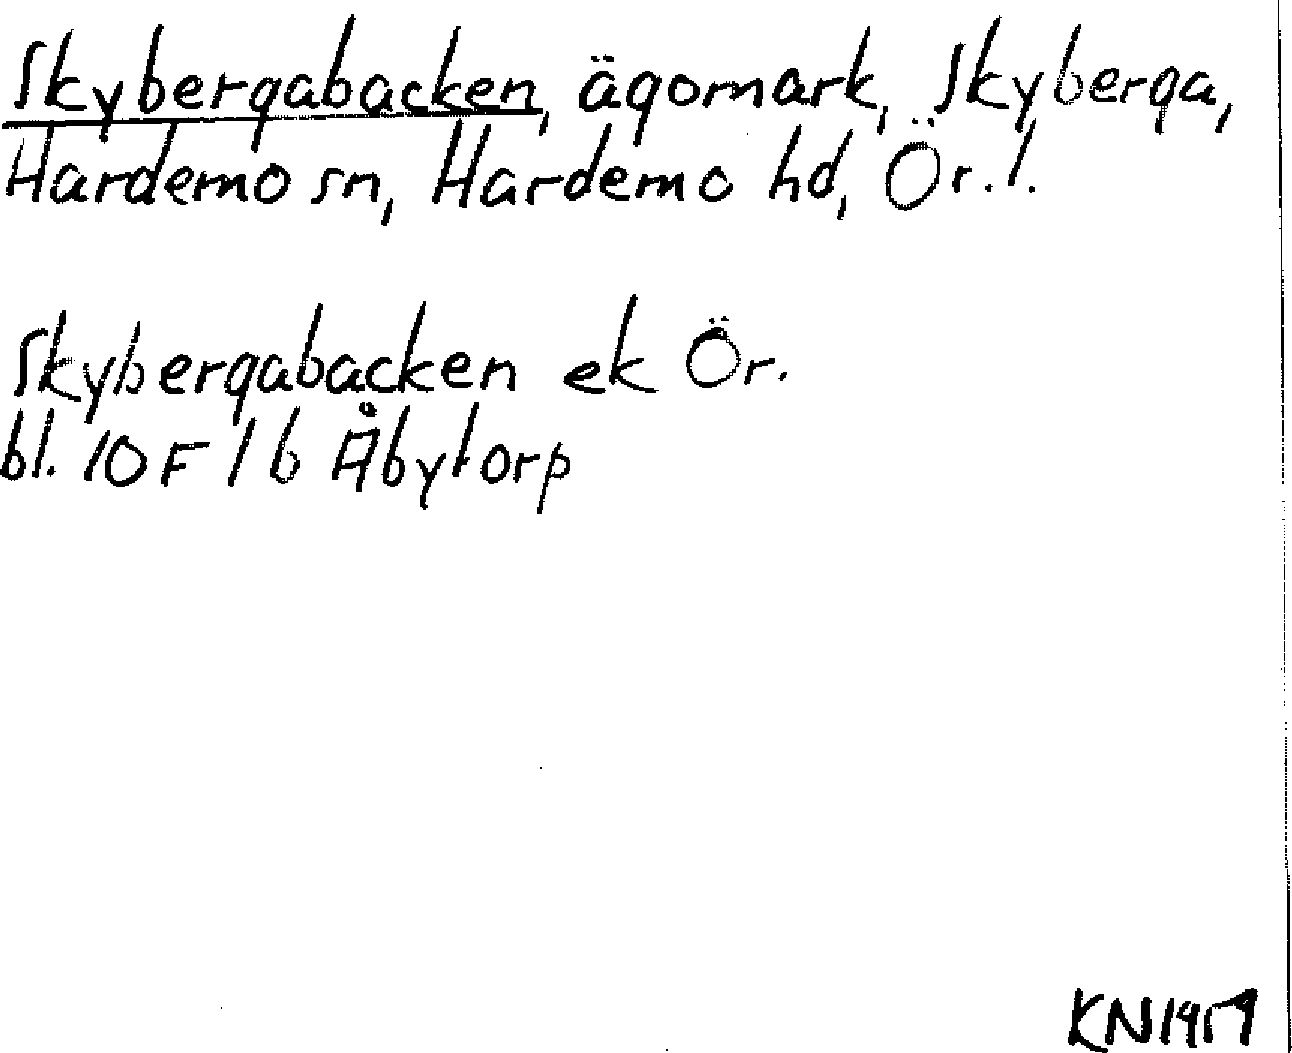 Skybergabacken, ägomark, Skyberga,
Hardemo sn, Hardemo hd, Ör. l.
Skybergabacken ek Ör.
bl. 10 F 1 b Åbytorp